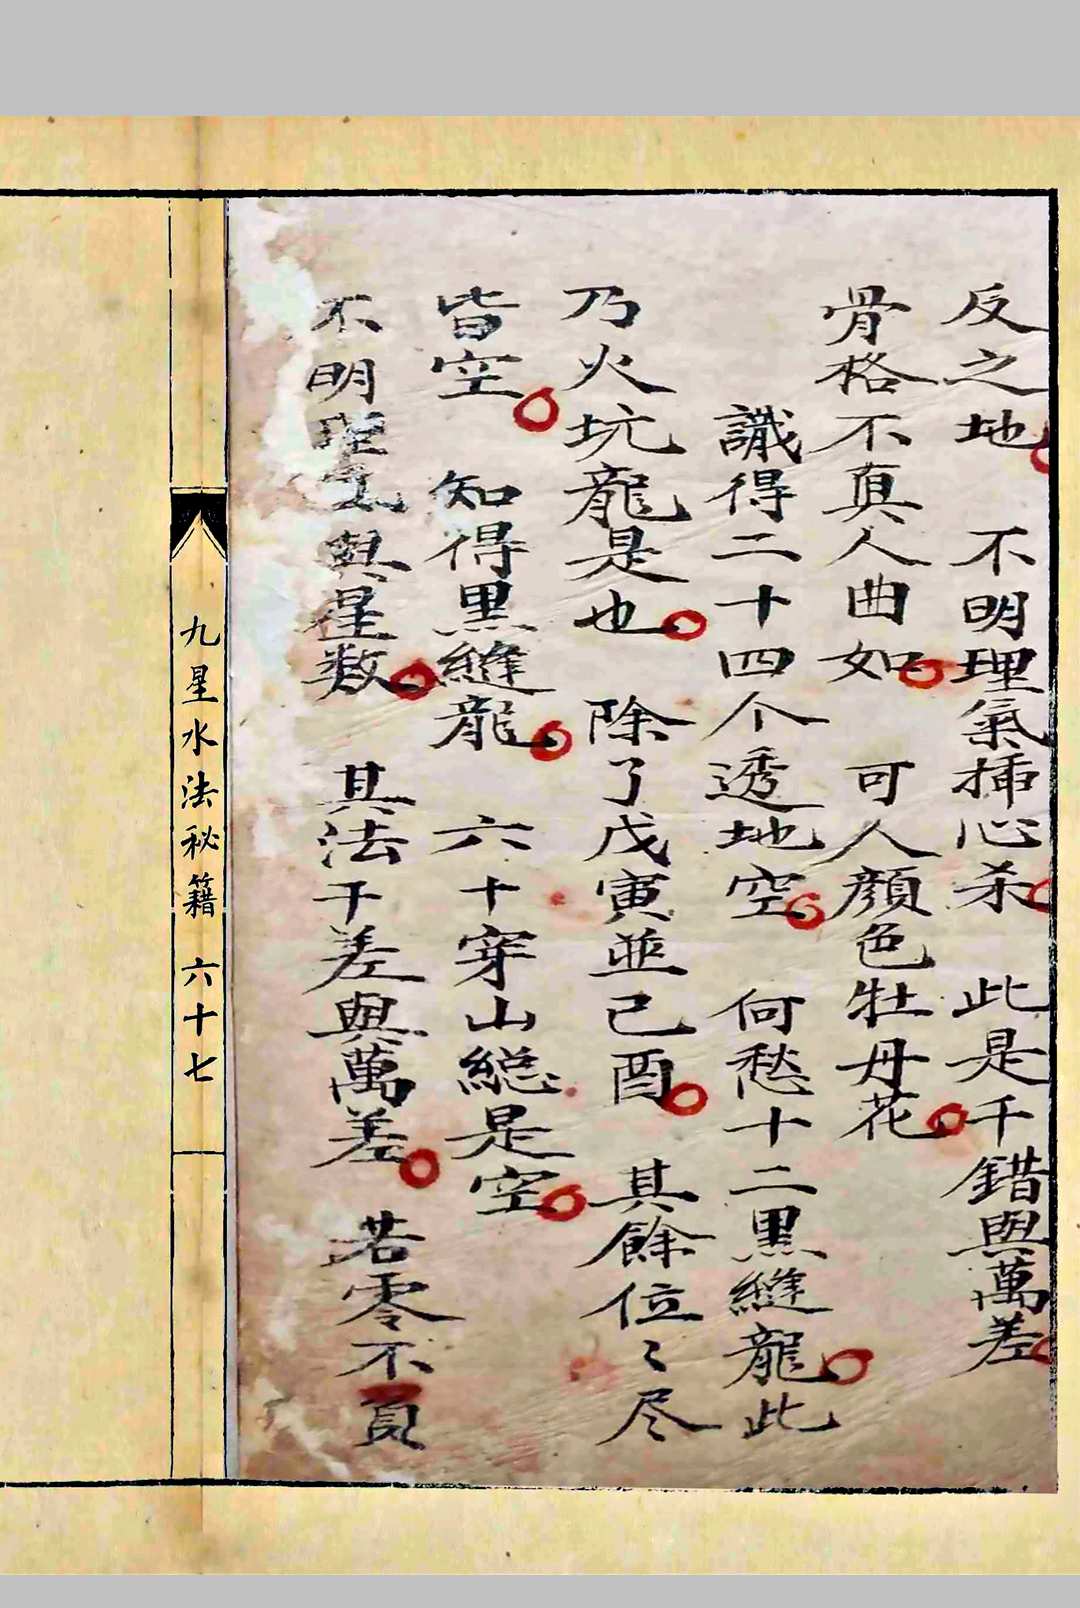 反之地 不明理氣揷心杀 此是千錯與萬差
骨格不真人曲如 可人顏色牡丹花
識得二十四个透地空 何愁十二黑縫龍此
乃火坑龍是也 除了戊寅並己酉 其餘位〻尽
皆空 知得黑縫龍 六十穿山総是空
不明 與星数 其法千差與萬差 若零不
九星水法秘籍 六十七